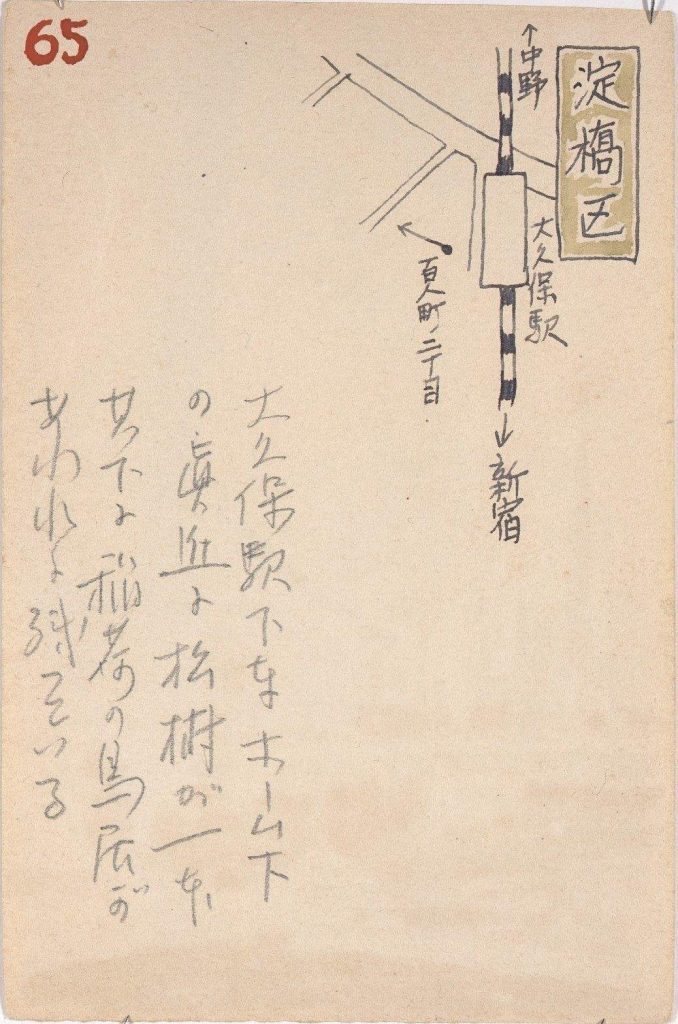 65
淀橋区
↑中野
大久保駅
百人町二丁目
↓新宿
大久保駅下車ホーム下
の眞近に松樹が一本
其下に稲荷の鳥居が
あわれに残っている